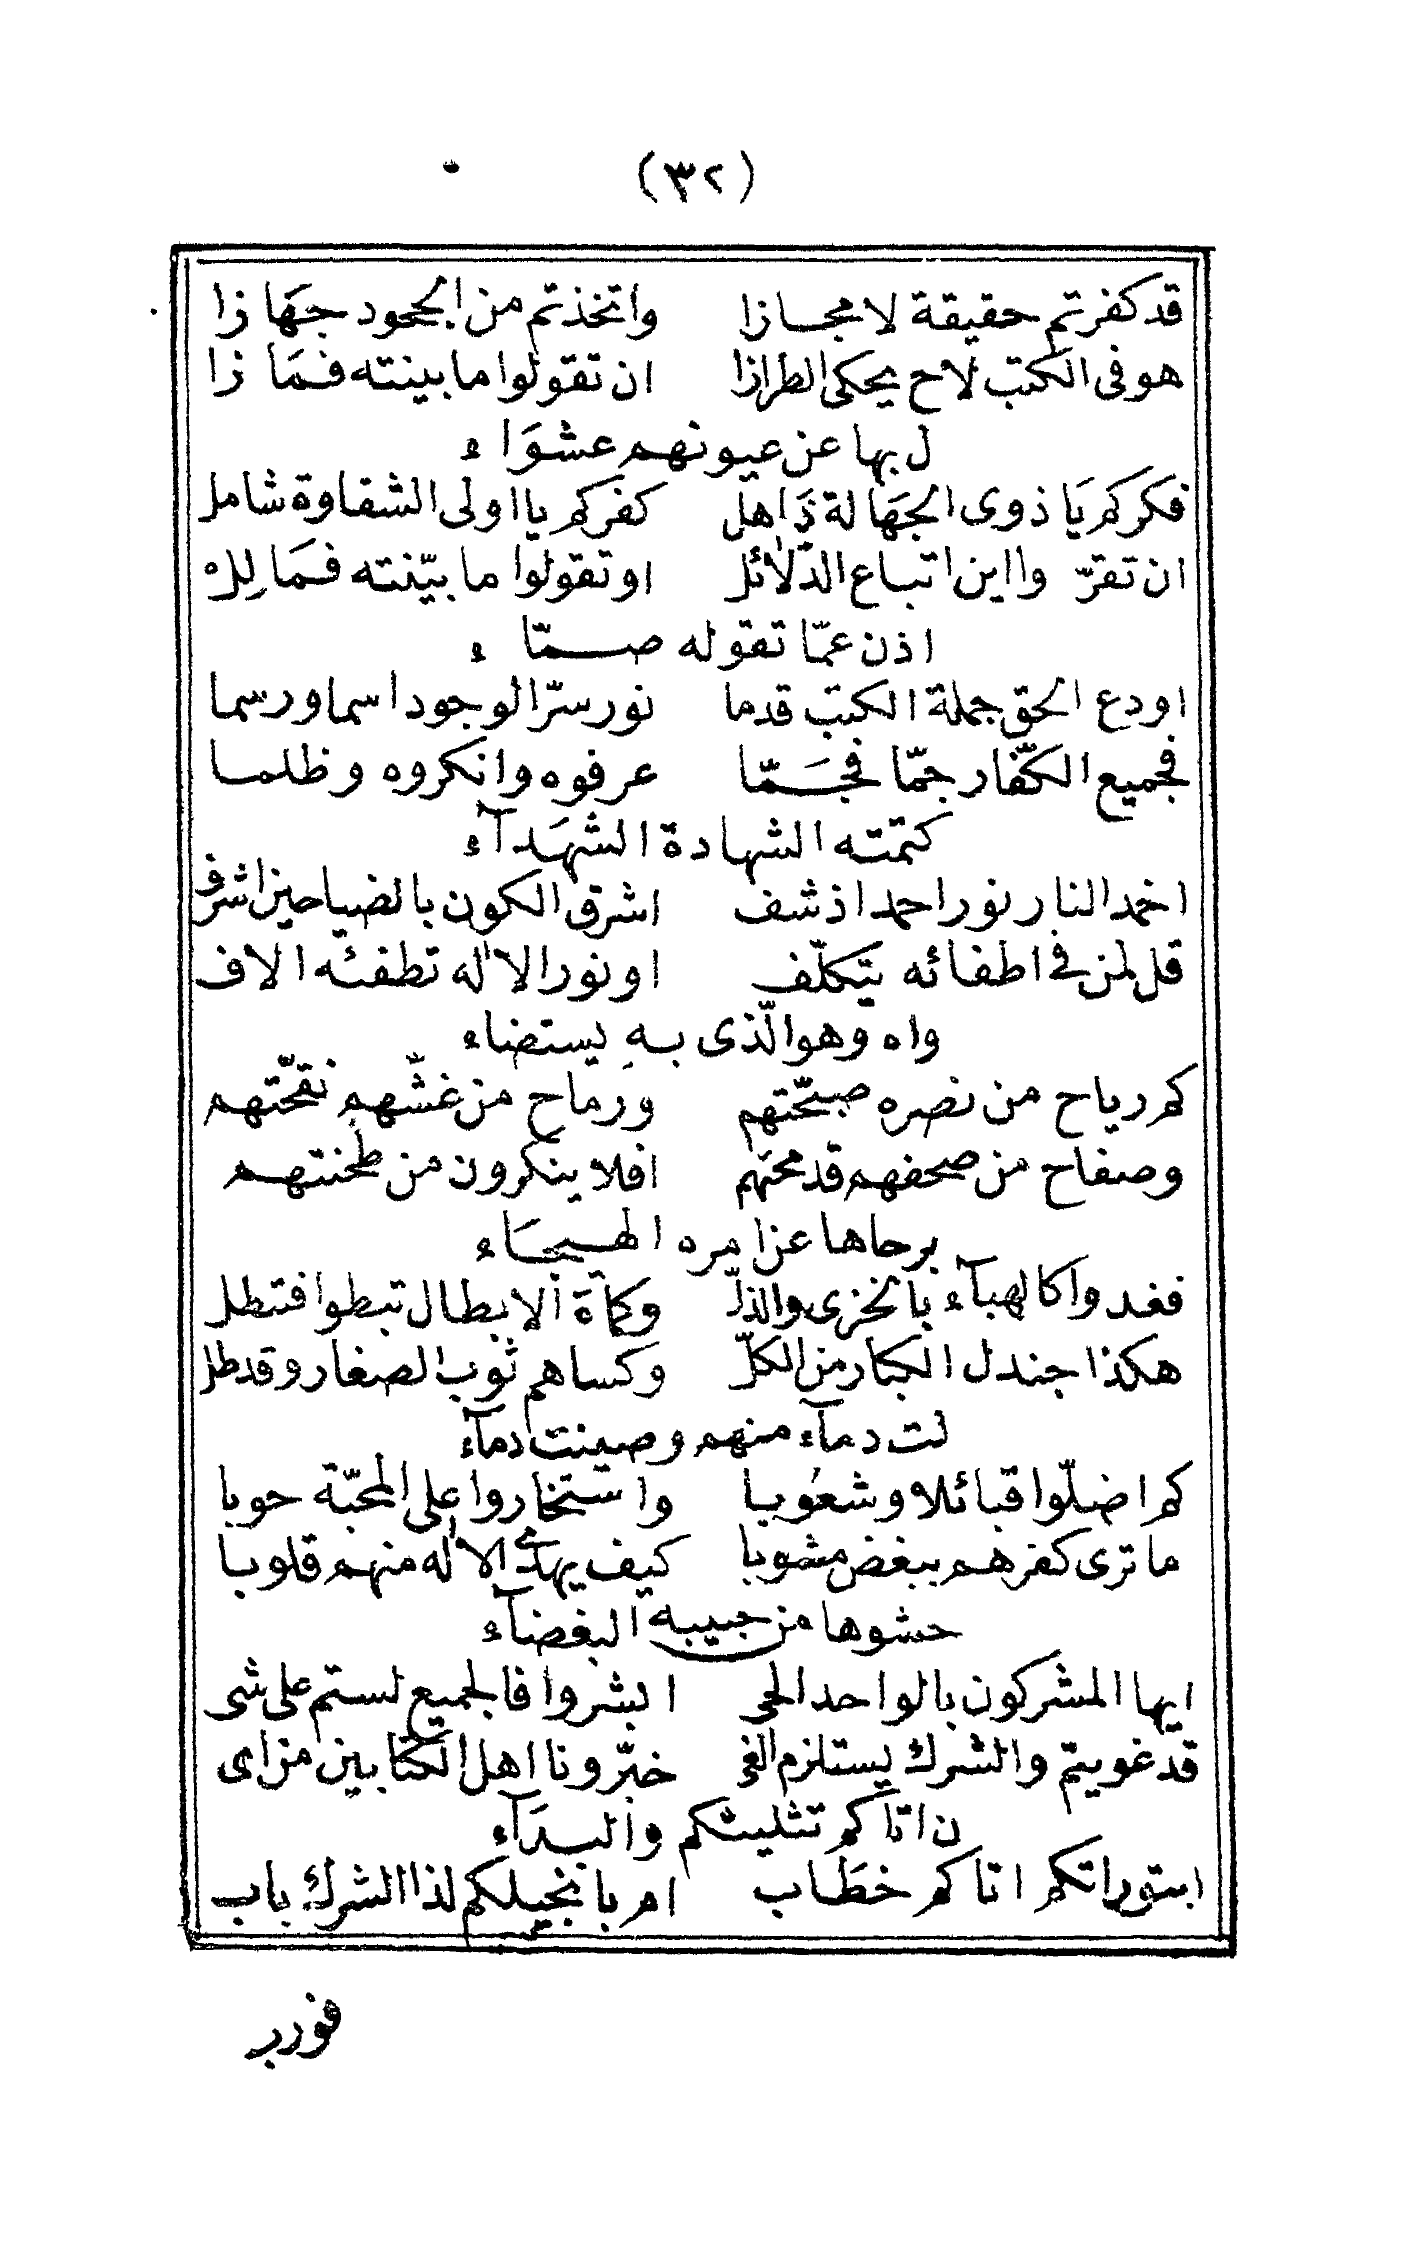 (٣٢)
قد كفرتم حقيقة لا مجازا واتخذتم من الجحود جهَازا
هو فى الكتب لاح يحكى الطرازا ان تقولوا ما بينته فمَا زا
ل بها عن عيونهم عشوَاء
فكركم يَا ذوى الجهَالة ذَاهل كفركم يا اولى الشقاوة شامل
ان تقرّوا اين اتباع الدّلائل او تقولوا ما بيّنته فمَا لِلْ
اذن عمّا تقوله صمّاء
اودع الحق جملة الكتب قدما نور سرّ الوجود اسما ورسما
فجميع الكفّار جمّا فجَمّا عرفوه وانكروه وظلما
كتمته الشهادة الشهَدآء
اخمد النار نور احمد اذ شف اشرق الكون بالضيا حين اشرف
قل لمن فى اطفائه يتكلّف او نور الاله تطفئه الاف
واه وهو الّذى بهِ يستضاء
كم رياح من نصره صبحّتهم ورماح من غشّهم نقحّتهم
وصفاح من صحفهم قد محَتهم افلا ينكرون من طحنتهم
برحاها عن امره الهيجَاء
فغدوا كالهبآء بالخزى والذلّ وكماة الابطال تبطوا فتطل
هكذا جندل الكبار من الكلّ وكساهم ثوب الصغار وقد طل
لت دمآء منهم وصينت دمآء
كم اضلّوا قبائلا وشعُوبا واستخاروا على المحبّة حوبا
ما ترى كفرهم ببغض مشوبا كيف يهدى الاله منهم قلوبا
حشوها من حبيبه البغضآء
ايها المشركون بالواحد الحى ابشروا فالجميع لستم على شى
قد غويتم والشرك يستلزم الغى خبّرونا اهل الكتابين من اى
ن اتاكم تثليثكم والبدَآء
ابتوراتكم اتاكم خطَاب ام بانجيلكم لذا الشرك باب
فورب